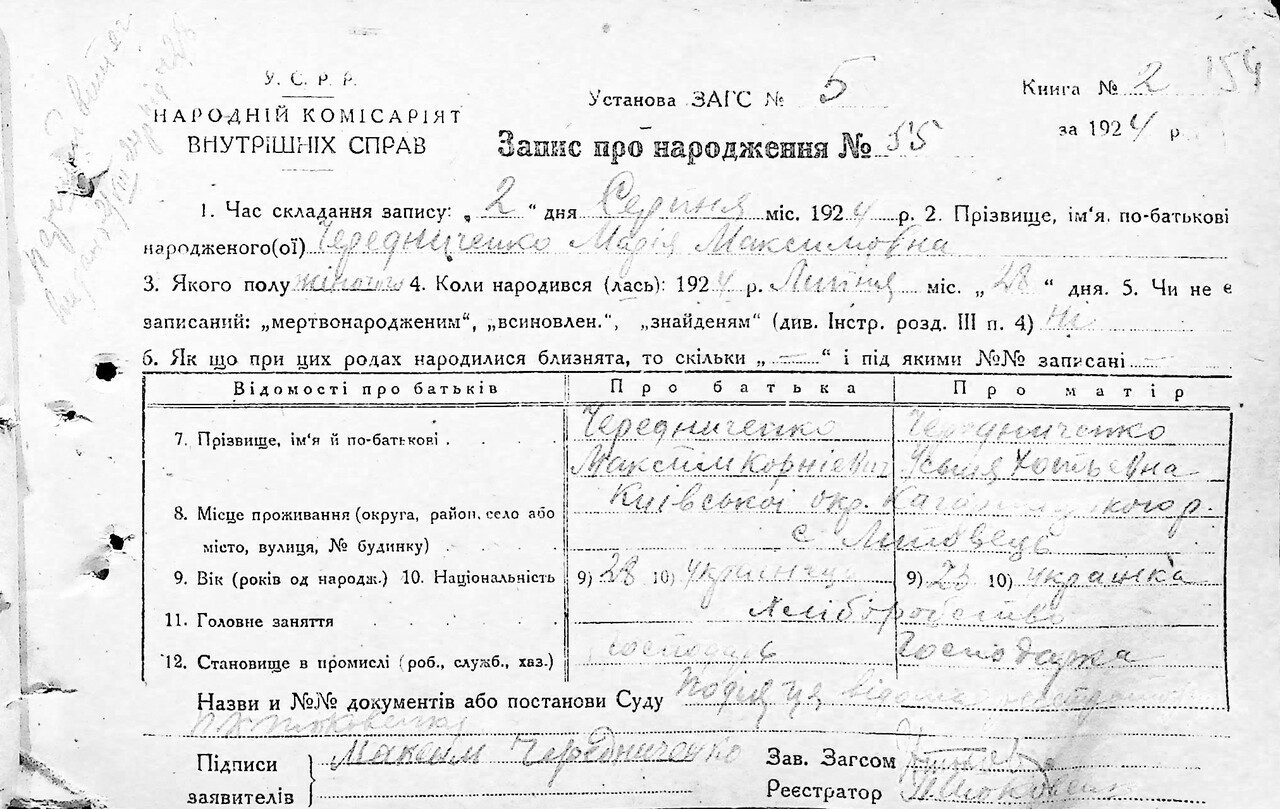 У. С. Р. Р.
НАРОДНІЙ КОМІСАРІЯТ
ВНУТРІШНІХ СПРАВ
Установа ЗАГС № 5
Книга № 2 154
за 1924 р.
Запис про народження № 55
1. Час складання запису: „2“ дня Серпня міс. 1924 р. 2. Прізвище, ім'я, по-батькові
народженого(ої) Чередниченко Марія Максимовна
3. Якого полу жіночого 4. Коли народився (лась): 1924 р. Липня міс. „28“ дня. 5. Чи не є
записаний: „мертвонародженим“, „всиновлен.“, „знайденям“ (див. Інстр. розд. III п. 4) Ні
6. Як що при цих родах народилися близнята, то скільки „—“ і під якими №№ записані —
Відомості про батьків Про батька Про матір
7. Прізвище, ім'я й по-батькові Чередниченко Чередниченко
Максим Корніевич
8. Місце проживання (округа, район, село або Київської окр.
місто, вулиця, № будинку) с Литовець
9. Вік (років од народж.) 10. Національність 9) 28 10) Українець 9) 10) Українка
11. Головне заняття Хліборобство
12. Становище в промислі (роб., служб., хаз.) Господарь Господарка
Назви и №№ документів або постанови Суду Подія ця
Підписи Максим Чередниченко Зав. Загсом
заявителів Реєстратор